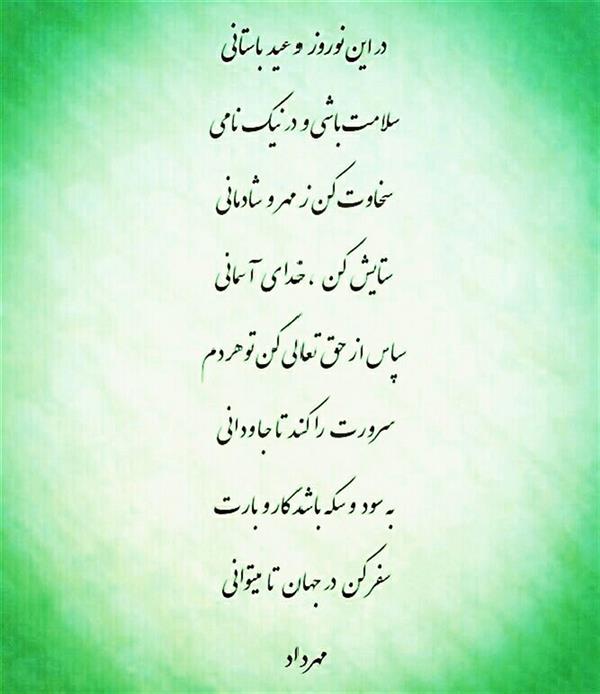 در این نوروز و عید باستانی
سلامت باشی و در نیک نامی
سخاوت کن ز مهر و شادمانی
ستایش کن ، خدای آسمانی
سپاس از حق تعالی کن تو هر دم
سرورت را کند تا جاودانی
به سود و سکه باشد کار و بارت
سفر کن در جهان تا میتوانی
مهرداد